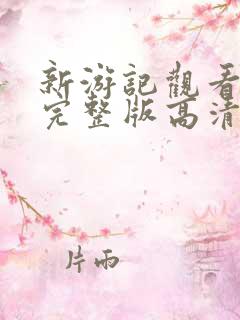 新游記觀看
完整版高清
片雨